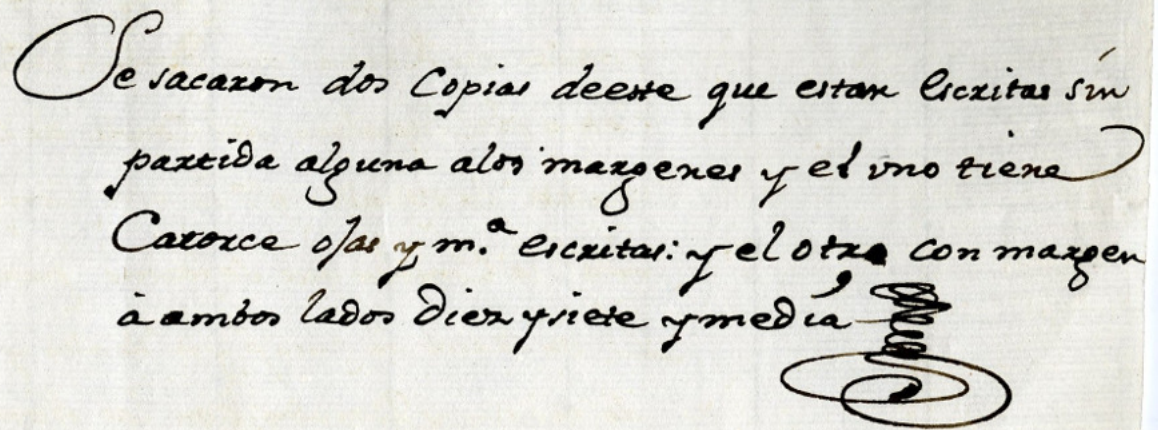 Se sacaron dos Copias deeste que estan escritas sin
partida alguna alos margenes y el vno tiene
Catorce ojas y m.ª escritas: y el otro con margen
à ambos lados Diez ysiete ymedia